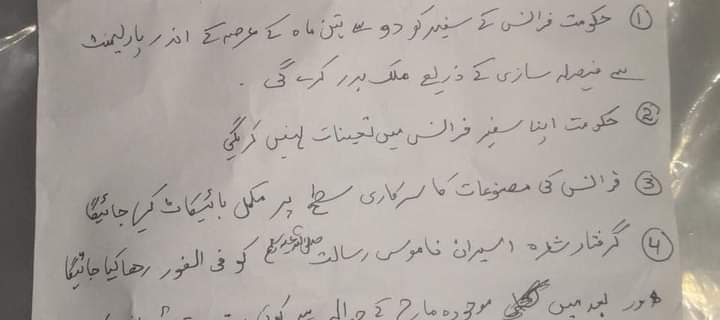 ① حکومت فرانس کے سفیر کو دو سے تین ماہ کے عرصہ کے اندر پارلیمنٹ
سے فیصلہ سازی کے ذریعے ملک بدر کرے گی ۔
② حکومت اپنا سفیر فرانس میں تعینات نہیں کریگی
③ فرانس کی مصنوعات کا سرکاری سطح پر مکمل بائیکاٹ کیا جائیگا
④ گرفتار شدہ اسیران ناموس رسالت صلی اللہ علیہ وسلم کو فی الفور رھا کیا جائیگا
اور بعد میں موجودہ مارچ کے حوالے سے کوئی